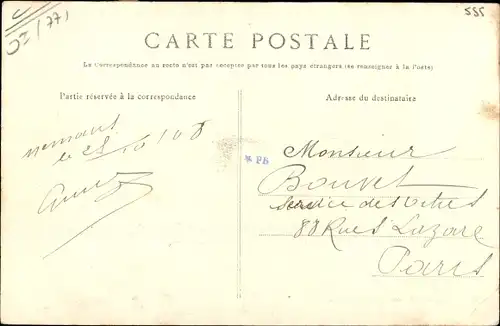 555
CARTE POSTALE
La Correspondance au recto n'est pas acceptée par tous les pays étrangers (se renseigner à la Poste)
Partie réservée à la correspondance
Adresse du destinataire
le 28/10/08
* PB
Monsieur
Bouvet
Service des Titres
88 Rue St Lazare
Paris